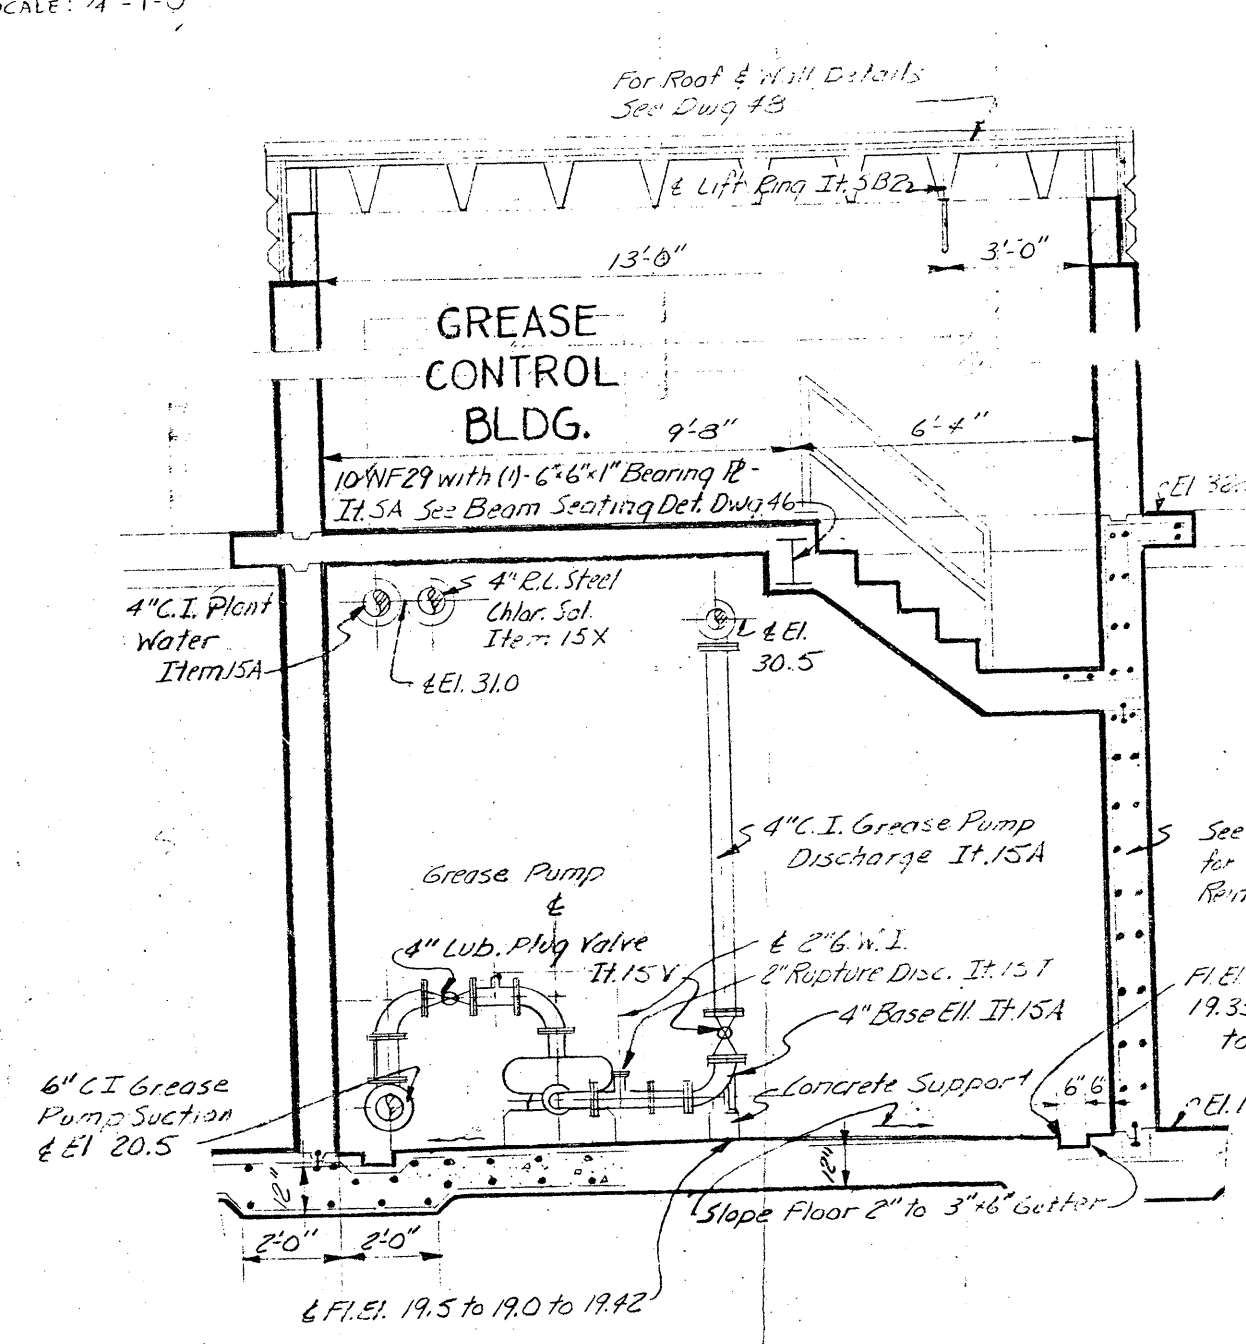 SCALE: ¼"=1'-0
For Roof & Wall Details
See Dwg 48
℄ Lift Ring It. 5B2
13'-0"
3'-0"
GREASE
CONTROL
BLDG.
9'-8"
6'-4"
10WF29 with (1)-6"x6"x1" Bearing PL-
It. 5A See Beam Seating Det. Dwg 46
El.
4" C.I. Plant
Water
Item 15A
4" R.L. Steel
Chlor. Sol.
Item 15X
℄ El. 31.0
℄ El.
30.5
4" C.I. Grease Pump
Discharge It. 15A
See
for
Grease Pump
℄
4" Lub. Plug Valve
It. 15V
℄ 2" G.W.I.
2" Rupture Disc. It. 15T
4" Base Ell. It. 15A
Fl. El.
to
6" C I Grease
Pump Suction
℄ El 20.5
Concrete Support
6" 6"
El.
12"
12"
Slope Floor 2" to 3"x6" Gutter
2'-0"
2'-0"
℄ Fl. El. 19.5 to 19.0 to 19.42